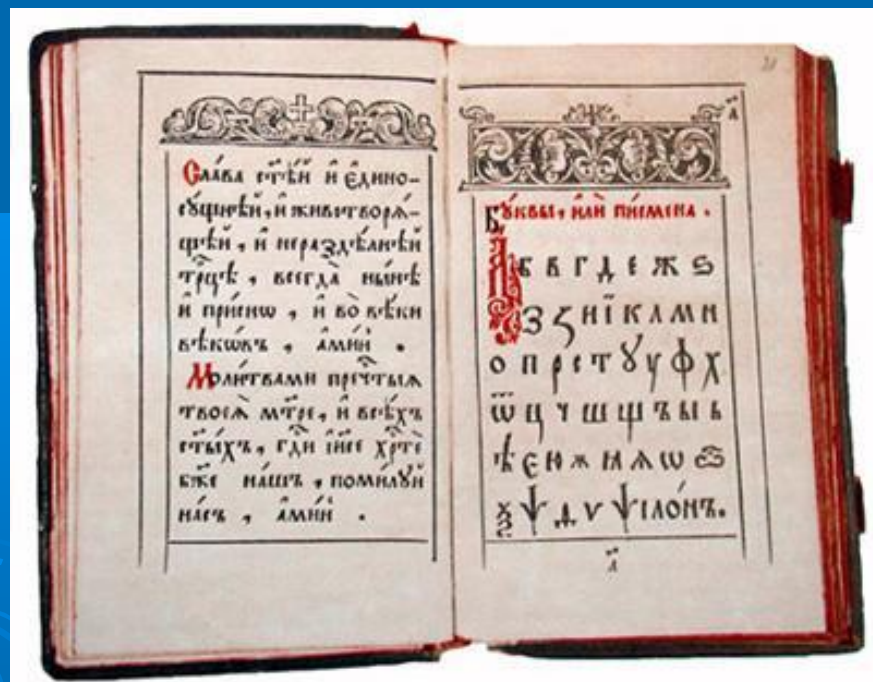 Сла́ва ст҃ѣ́й и҆ є҆ди́но-
сꙋ́щнѣй, и҆ животворѧ́-
щей, и҆ нераздѣ́лнѣй
трⷪ҇цѣ, всегда̀ ны́нѣ
и҆ при́снѡ, и҆ во вѣ́ки
вѣкѡ́въ, а҆ми́нь.
Моли́твами пречⷭ҇тыѧ
твоеѧ̀ мт҃ре, и҆ всѣ́хъ
ст҃ы́хъ, гдⷭ҇и і҆и҃се хрⷭ҇тѐ
бж҃е на́шъ, поми́лꙋй
на́съ, а҆ми́нь.
Бꙋ́квы, и҆лѝ пи́смена.
А Б В Г Д Е Ж Ѕ
З Ꙁ И Ї К Л М Н
О П Р С Т Ꙋ У Ф Х
Ѿ Ц Ч Ш Щ Ъ Ы Ь
Ѣ Є Ю Ѫ Ꙗ Ѧ Ѡ
Ѯ Ѱ Ѵ ѱїло́нъ.